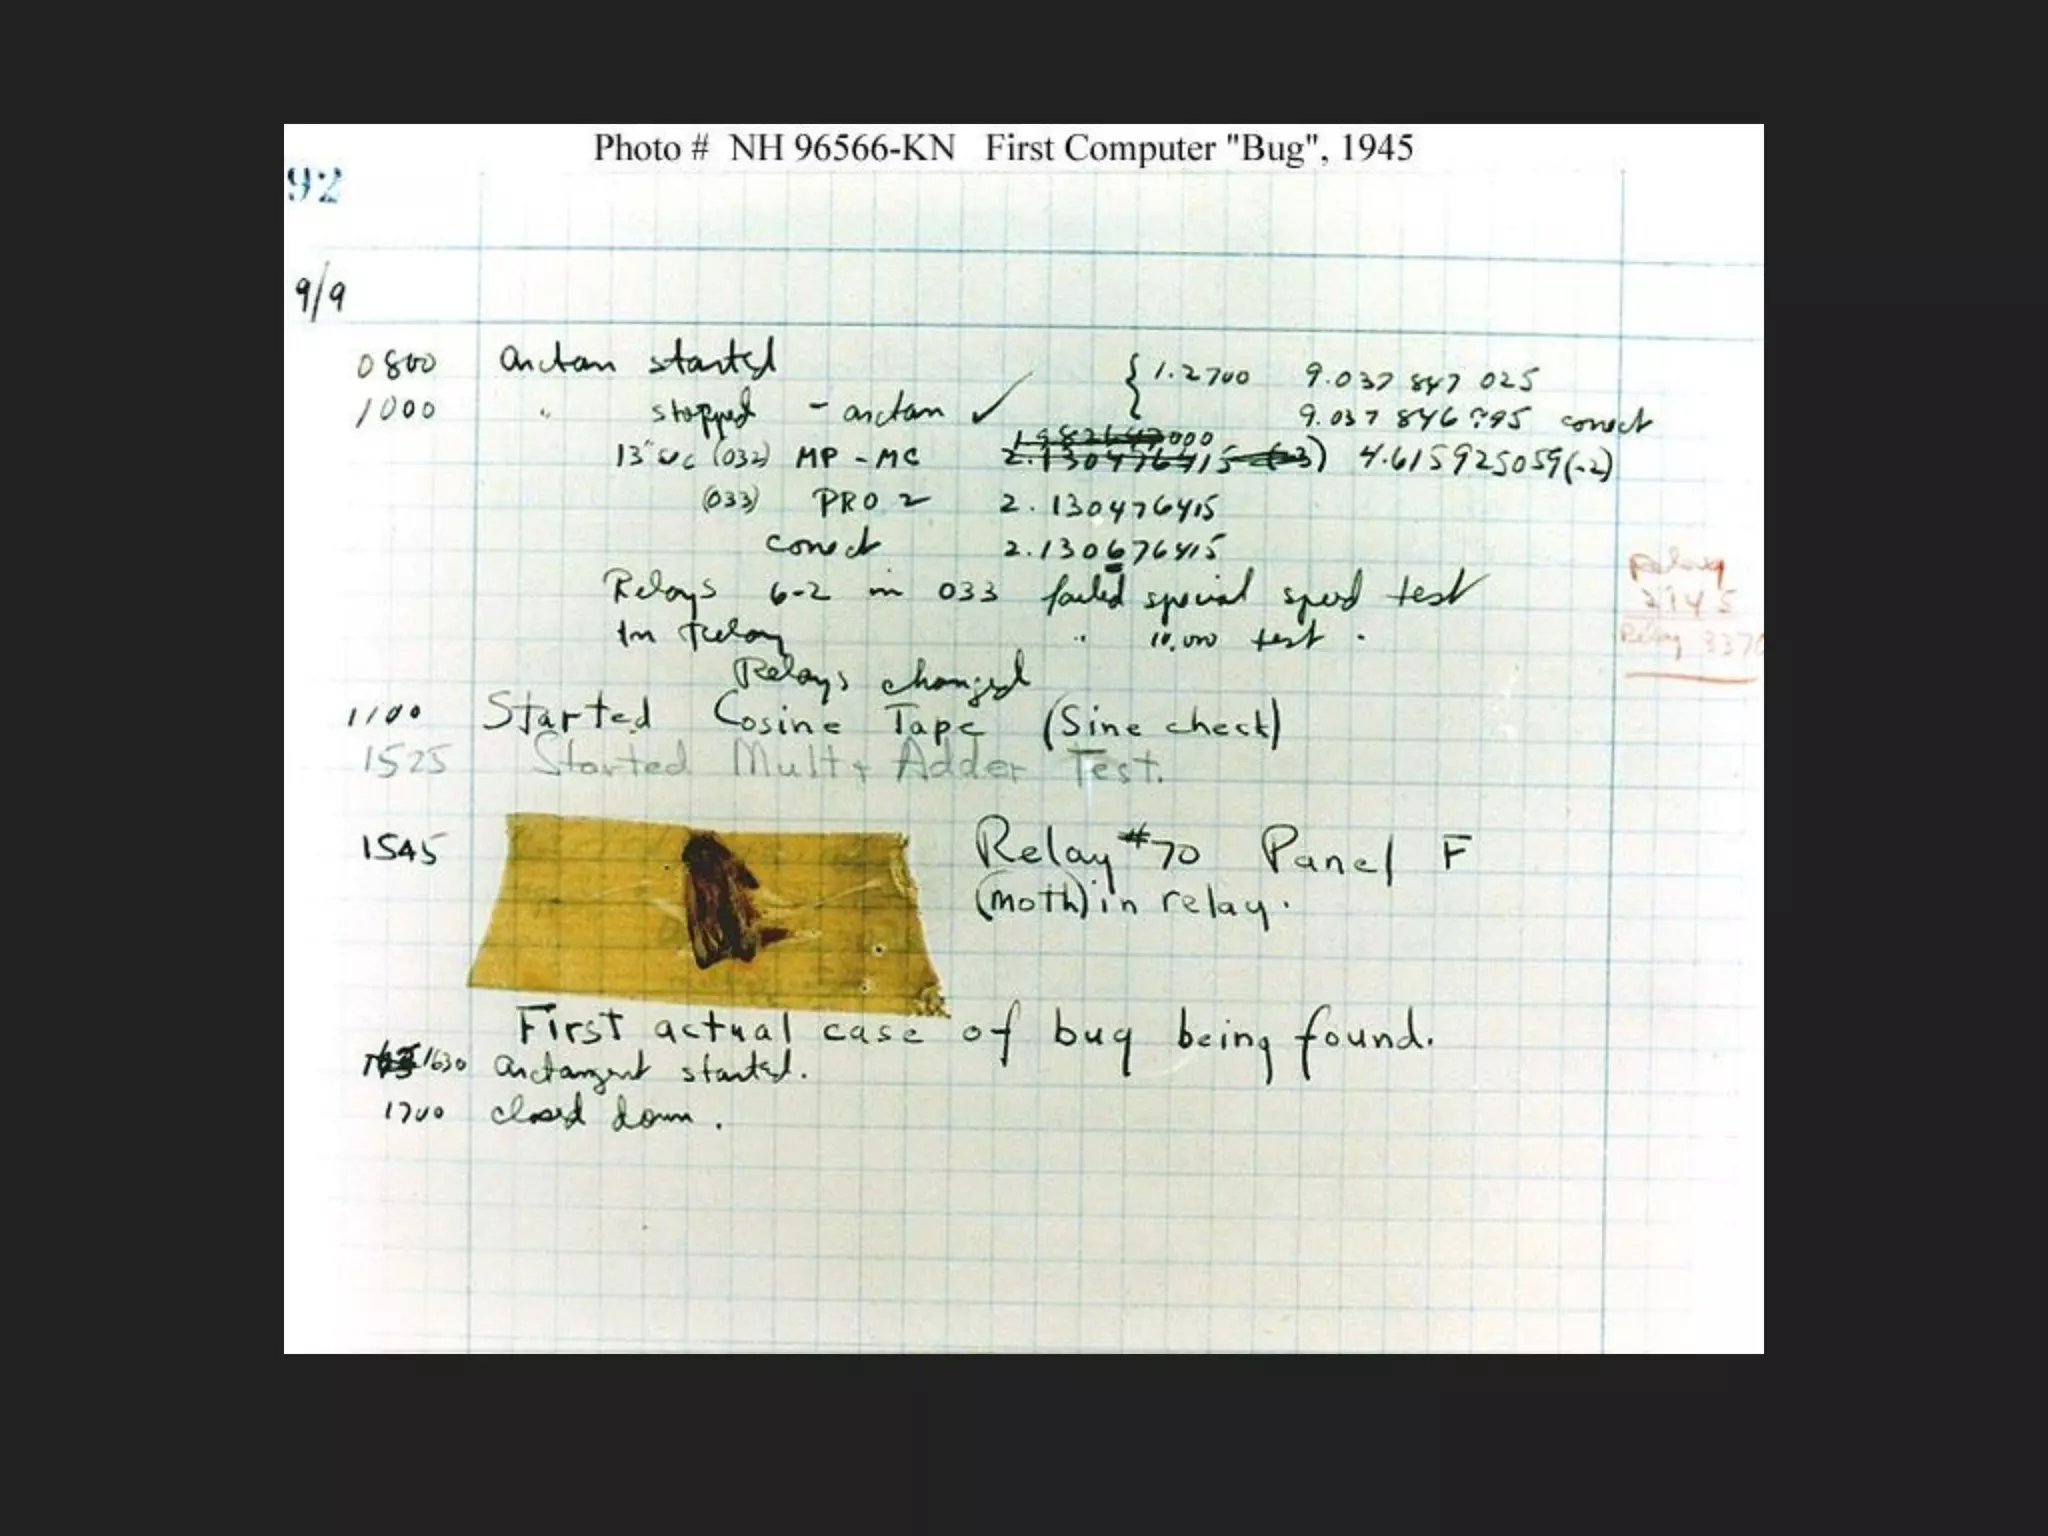 Photo # NH 96566-KN First Computer "Bug", 1945
92
9/9
0800 arctan started { 1.2700 9.037 847 025
1000 " stopped - arctan ✓ 9.037 846 795 correct
000
13" sec (032) MP - MC 2.130476415 (-3) 4.615925059(-2)
(033) PRO 2 2.130476415
correct 2.130676415
Relays 6-2 in 033 failed special speed test
In Relay " 10,000 test .
Relays changed
Relay
2145
Relay 3370
1100 Started Cosine Tape (Sine check)
1525 Started Mult + Adder Test.
1545 Relay #70 Panel F
(moth) in relay.
First actual case of bug being found.
1630 arctangent started.
1700 closed down.